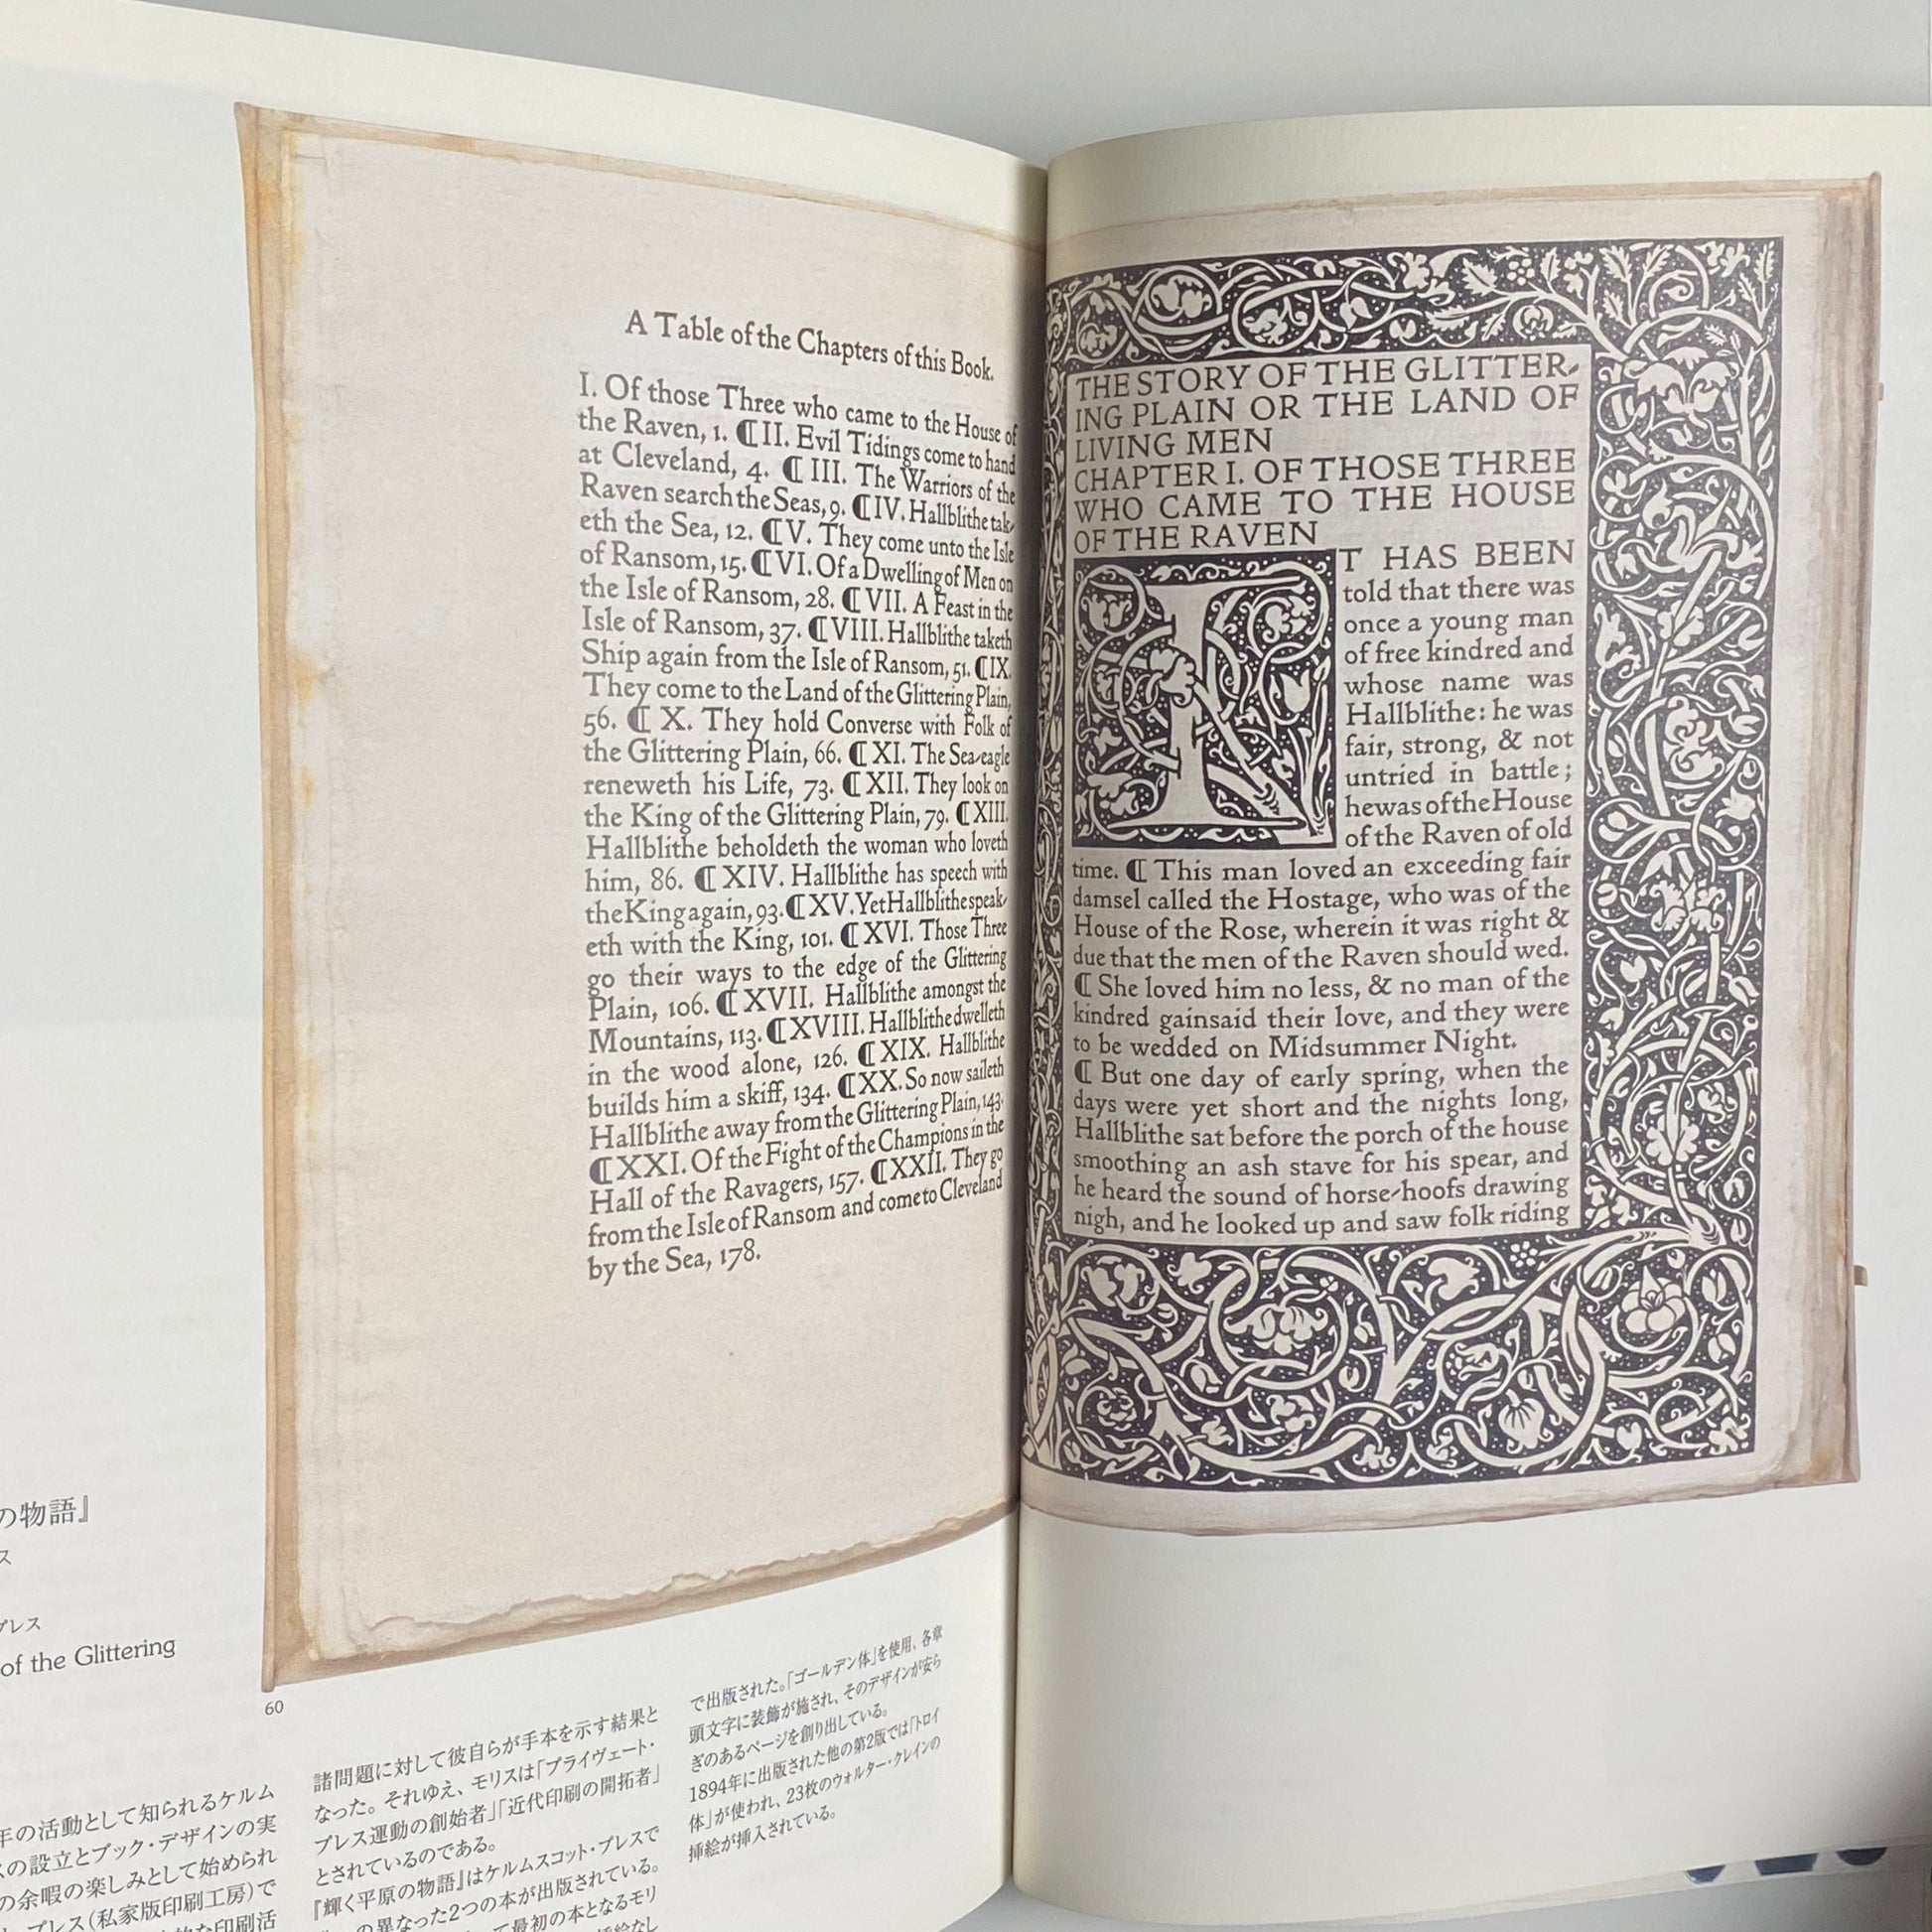 A Table of the Chapters of this Book.
I. Of those Three who came to the House of
the Raven, 1. ⁋ II. Evil Tidings come to hand
at Cleveland, 4. ⁋ III. The Warriors of the
Raven search the Seas, 9. ⁋ IV. Hallblithe tak-
eth the Sea, 12. ⁋ V. They come unto the Isle
of Ransom, 15. ⁋ VI. Of a Dwelling of Men on
the Isle of Ransom, 28. ⁋ VII. A Feast in the
Isle of Ransom, 37. ⁋ VIII. Hallblithe taketh
Ship again from the Isle of Ransom, 51. ⁋ IX.
They come to the Land of the Glittering Plain,
56. ⁋ X. They hold Converse with Folk of
the Glittering Plain, 66. ⁋ XI. The Sea-eagle
reneweth his Life, 73. ⁋ XII. They look on
the King of the Glittering Plain, 79. ⁋ XIII.
Hallblithe beholdeth the woman who loveth
him, 86. ⁋ XIV. Hallblithe has speech with
the King again, 93. ⁋ XV. Yet Hallblithe speak-
eth with the King, 101. ⁋ XVI. Those Three
go their ways to the edge of the Glittering
Plain, 106. ⁋ XVII. Hallblithe amongst the
Mountains, 113. ⁋ XVIII. Hallblithe dwelleth
in the wood alone, 126. ⁋ XIX. Hallblithe
builds him a skiff, 134. ⁋ XX. So now saileth
Hallblithe away from the Glittering Plain, 143.
⁋ XXI. Of the Fight of the Champions in the
Hall of the Ravagers, 157. ⁋ XXII. They go
from the Isle of Ransom and come to Cleveland
by the Sea, 178.
THE STORY OF THE GLITTER-
ING PLAIN OR THE LAND OF
LIVING MEN
CHAPTER I. OF THOSE THREE
WHO CAME TO THE HOUSE
OF THE RAVEN
IT HAS BEEN
told that there was
once a young man
of free kindred and
whose name was
Hallblithe: he was
fair, strong, & not
untried in battle;
he was of the House
of the Raven of old
time. ⁋ This man loved an exceeding fair
damsel called the Hostage, who was of the
House of the Rose, wherein it was right &
due that the men of the Raven should wed.
⁋ She loved him no less, & no man of the
kindred gainsaid their love, and they were
to be wedded on Midsummer Night.
⁋ But one day of early spring, when the
days were yet short and the nights long,
Hallblithe sat before the porch of the house
smoothing an ash stave for his spear, and
he heard the sound of horse-hoofs drawing
nigh, and he looked up and saw folk riding
の物語』
ス
プレス
of the Glittering
60
年の活動として知られるケルム
スの設立とブック・デザインの実
の余暇の楽しみとして始められ
プレス(私家版印刷工房)で
な印刷活
諸問題に対して彼自らが手本を示す結果と
なった。それゆえ、モリスは「プライヴェート・
プレス運動の創始者」「近代印刷の開拓者」
とされているのである。
『輝く平原の物語』はケルムスコット・プレスで
の異なった2つの本が出版されている。
最初の本となるモリ
挿絵なし
で出版された。「ゴールデン体」を使用、各章
頭文字に装飾が施され、そのデザインが安ら
ぎのあるページを創り出している。
1894年に出版された他の第2版では「トロイ
体」が使われ、23枚のウォルター・クレインの
挿絵が挿入されている。